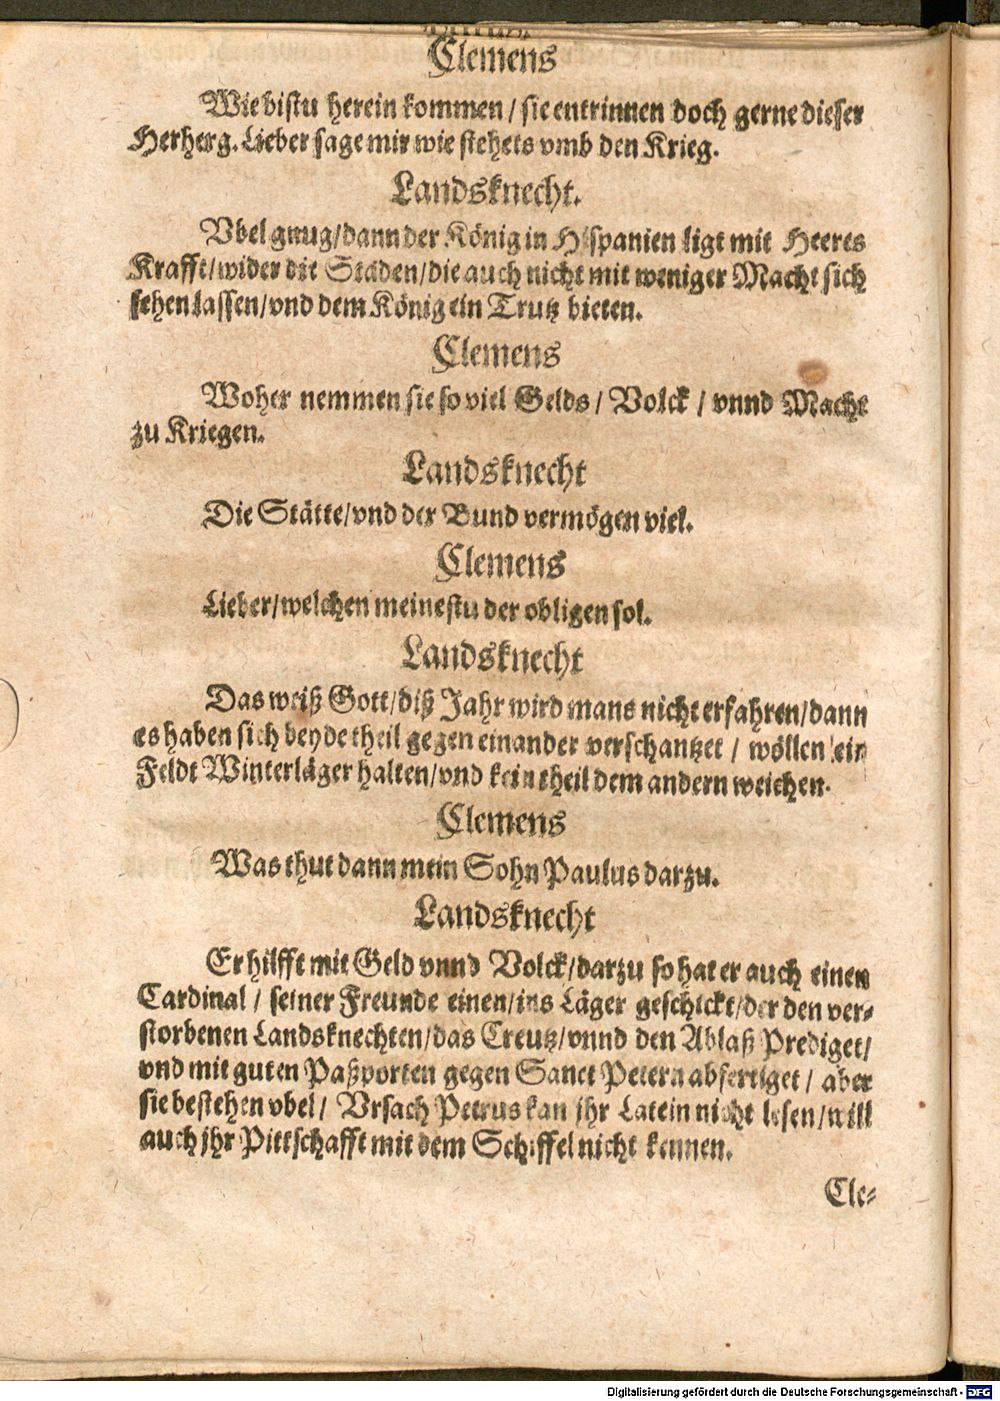 Clemens
Wie bistu herein kommen / sie entrinnen doch gerne dieser
Herherg. Lieber sage mir wie stehets vmb den Krieg.
Landsknecht.
Vbel gnug/dann der König in Hispanien ligt mit Heeres
Krafft/wider die Staden/die auch nicht mit weniger Macht sich
sehen lassen/vnd dem König ein Trutz bieten.
Clemens
Woher nemmen sie so viel Gelds / Volck / vnnd Macht
zu Kriegen.
Landsknecht
Die Stätte/vnd der Bund vermögen viel.
Clemens
Lieber/welchen meinestu der obligen sol.
Landsknecht
Das weiß Gott/diß Jahr wird mans nicht erfahren/dann
es haben sich beyde theil gegen einander verschantzet / wöllen ein
Feldt Winterläger halten/vnd kein theil dem andern weichen.
Clemens
Was thut dann mein Sohn Paulus darzu.
Landsknecht
Er hilfft mit Geld vnnd Volck/darzu so hat er auch einen
Cardinal / seiner Freunde einen/ins Läger geschickt/der den ver-
storbenen Landsknechten/das Creutz/vnnd den Ablaß Prediget/
vnd mit guten Paßporten gegen Sanct Petern abfertiget / aber
sie bestehen vbel / Vrsach Petrus kan jhr Latein nicht lesen/will
auch jhr Pittschafft mit dem Schiffel nicht kennen.
Cle-
Digitalisierung gefördert durch die Deutsche Forschungsgemeinschaft - DFG